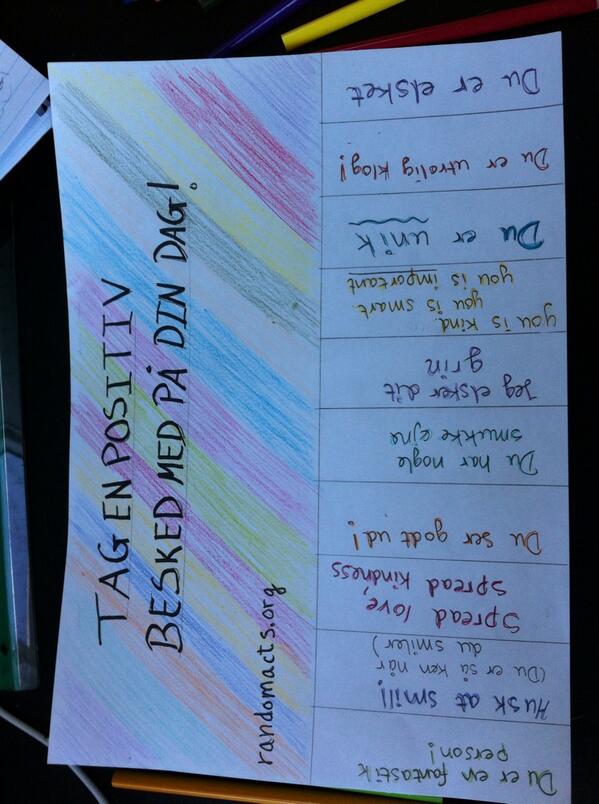 TAG EN POSITIV
BESKED MED PÅ DIN DAG!
randomacts.org
Du er en fantastik
person!
Husk at smil!
(Du er så køn når
du smiler)
Spread love,
spread kindness
Du ser godt ud!
Du har nogle
smukke øjne
Jeg elsker dit
grin
you is kind.
you is smart
you is important
Du er unik
Du er utrolig klog!
Du er elsket